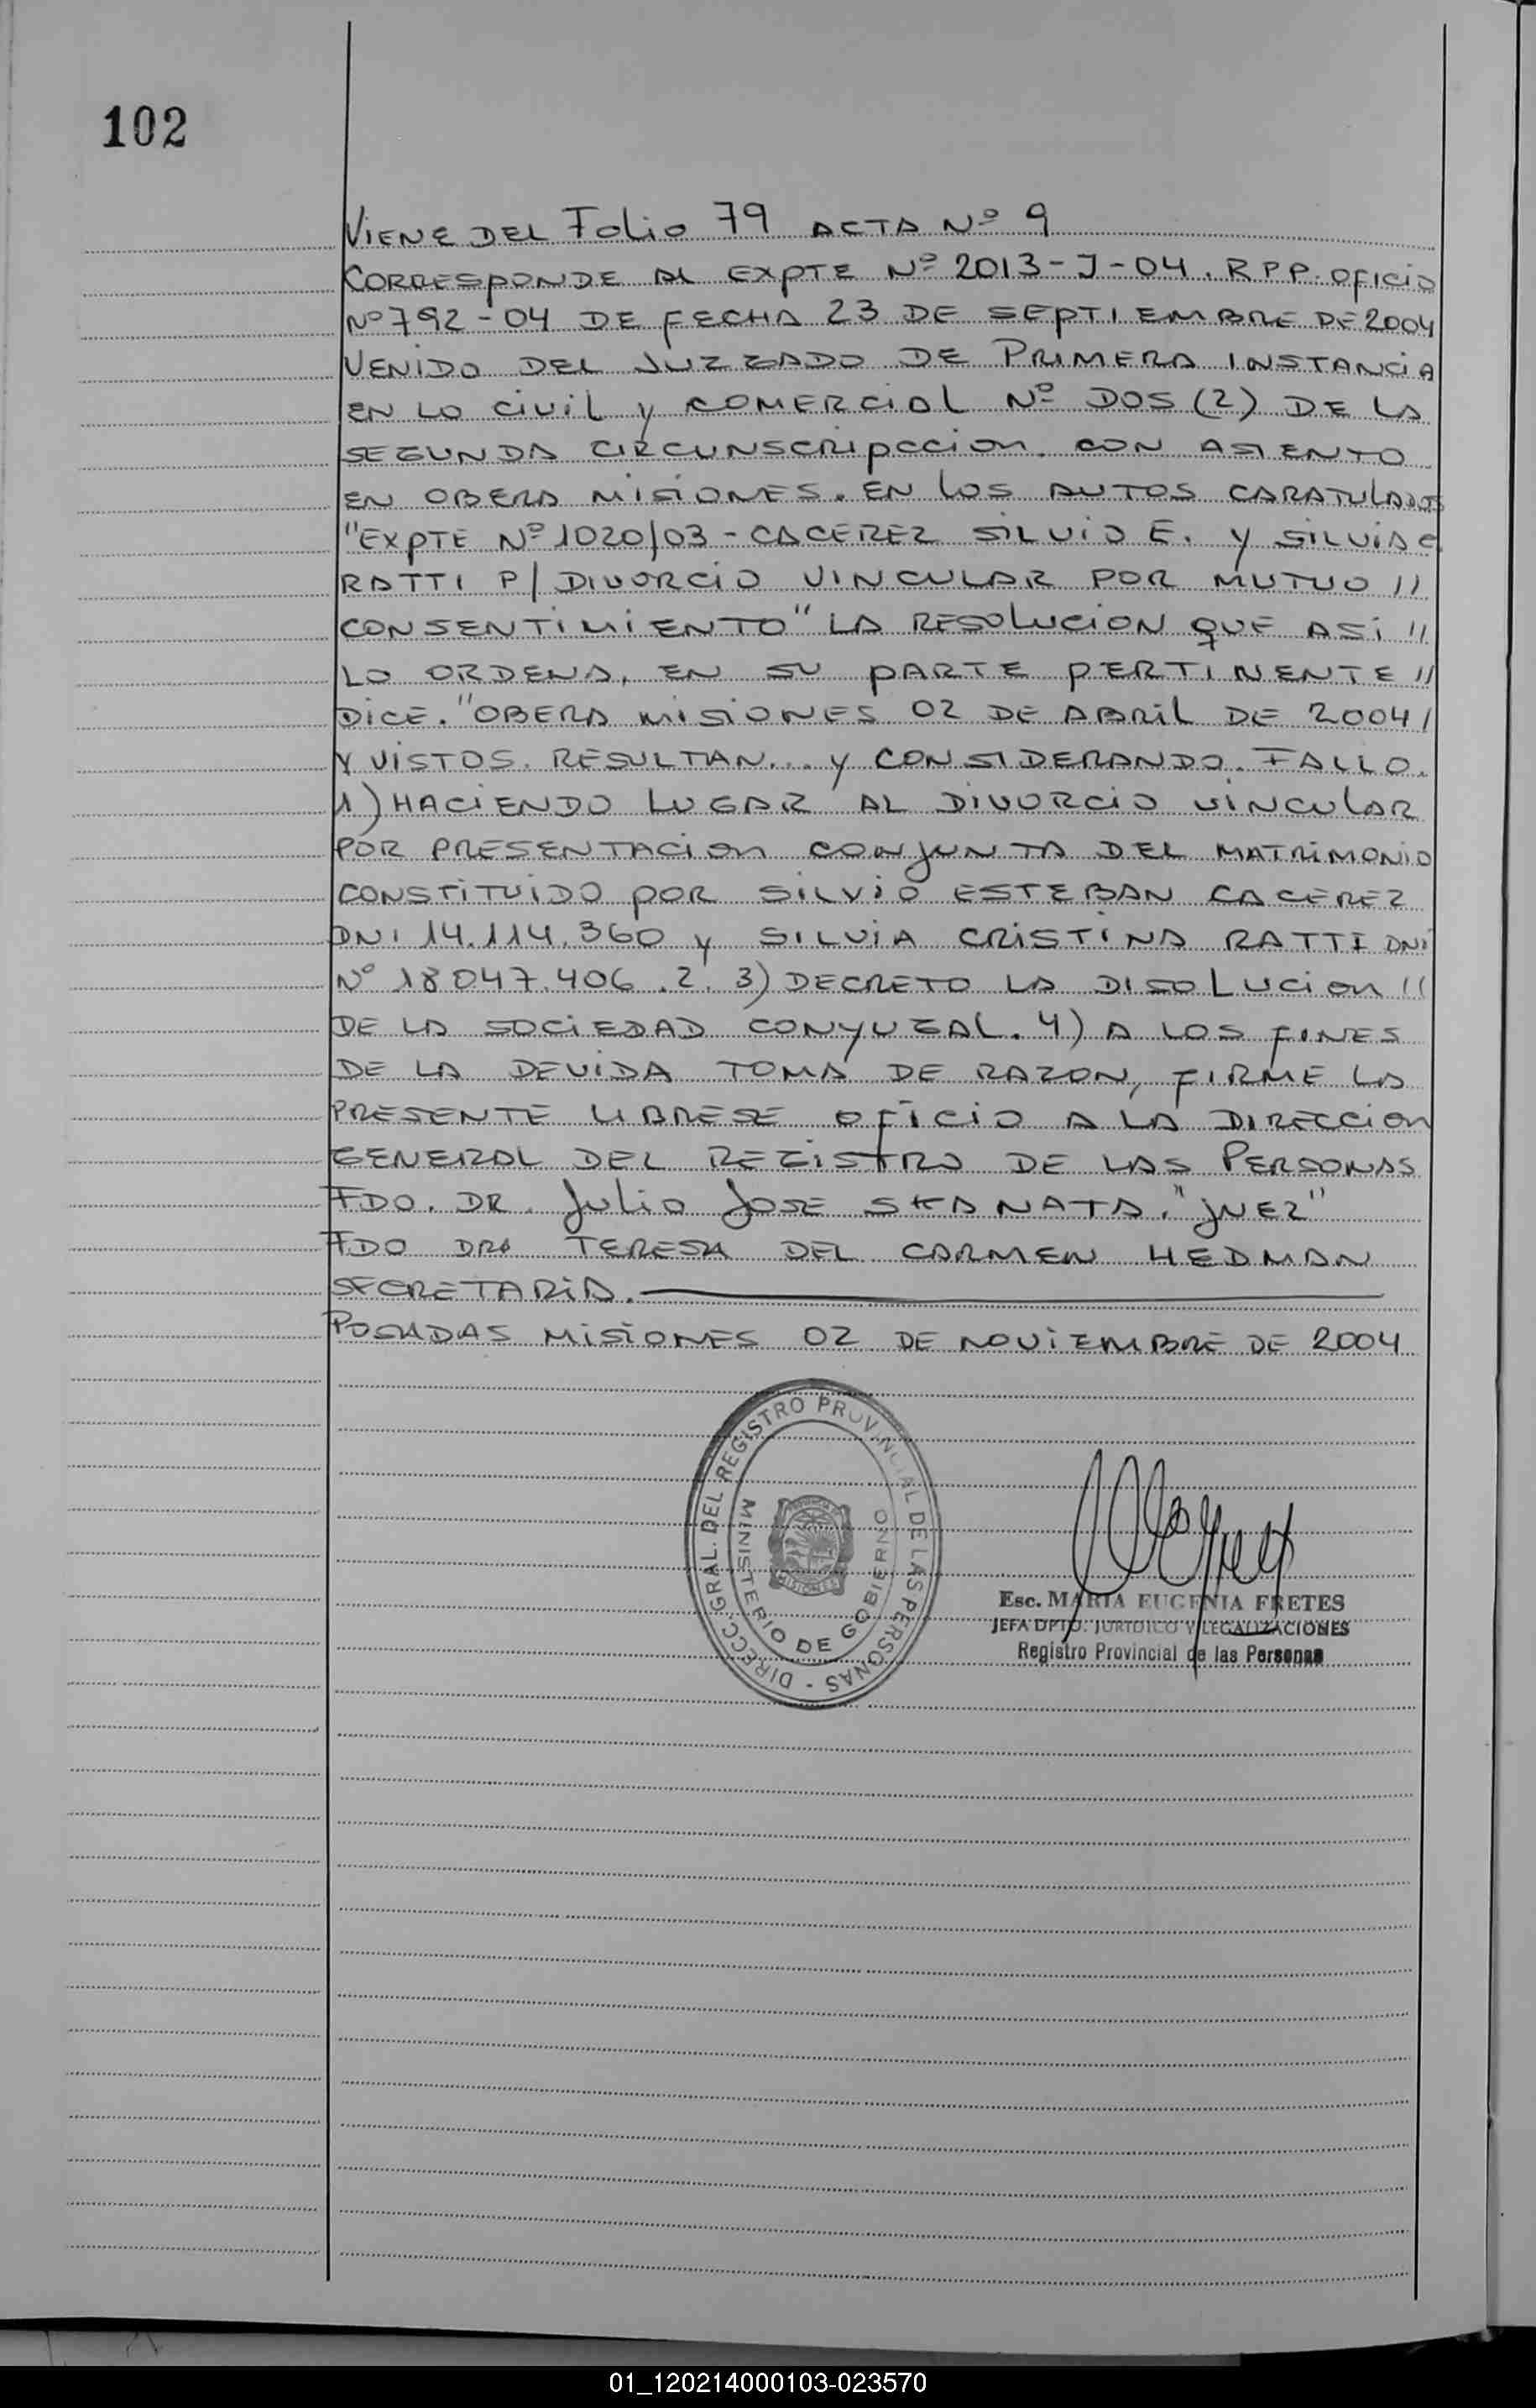 102
VIENE DEL Folio 79 ACTA Nº 9
CORRESPONDE AL EXPTE Nº 2013-J-04. R P P. OFICIO
Nº 792-04 DE FECHA 23 DE SEPTIEMBRE DE 2004
VENIDO DEL JUZGADO DE PRIMERA INSTANCIA
EN LO CIVIL Y COMERCIAL Nº DOS (2) DE LA
SEGUNDA CIRCUNSCRIPCCION. CON ASIENTO
EN OBERA MISIONES. EN LOS AUTOS CARATULADOS
"EXPTE Nº 1020/03 - CACEREZ SILVIO E. Y SILVIA C.
RATTI P/ DIVORCIO VINCULAR POR MUTUO //
CONSENTIMIENTO" LA RESOLUCION QUE ASI //
LO ORDENA, EN SU PARTE PERTINENTE //
DICE. "OBERA MISIONES 02 DE ABRIL DE 2004 /
Y VISTOS. RESULTAN... Y CONSIDERANDO. FALLO.
1) HACIENDO LUGAR AL DIVORCIO VINCULAR
POR PRESENTACION CONJUNTA DEL MATRIMONIO
CONSTITUIDO POR SILVIO ESTEBAN CACEREZ
DNI 14.114.360 Y SILVIA CRISTINA RATTI DNI
Nº 18047.406. 2. 3) DECRETO LA DISOLUCION //
DE LA SOCIEDAD CONYUGAL. 4) A LOS FINES
DE LA DEVIDA TOMA DE RAZON, FIRME LA
PRESENTE LIBRESE OFICIO A LA DIRECCION
GENERAL DEL REGISTRO DE LAS PERSONAS
FDO. DR. Julio JOSE SKANATA. "JUEZ"
FDO DRA TERESA DEL CARMEN HEDMAN
SECRETARIA.
POSADAS MISIONES 02 DE NOVIEMBRE DE 2004
DIRECC. GRAL. DEL REGISTRO PROVINCIAL DE LAS PERSONAS -
MINISTERIO DE GOBIERNO
MISIONES
Esc. MARIA EUGENIA FRETES
JEFA DPTO. JURIDICO Y LEGALIZACIONES
Registro Provincial de las Personas
01_120214000103-023570